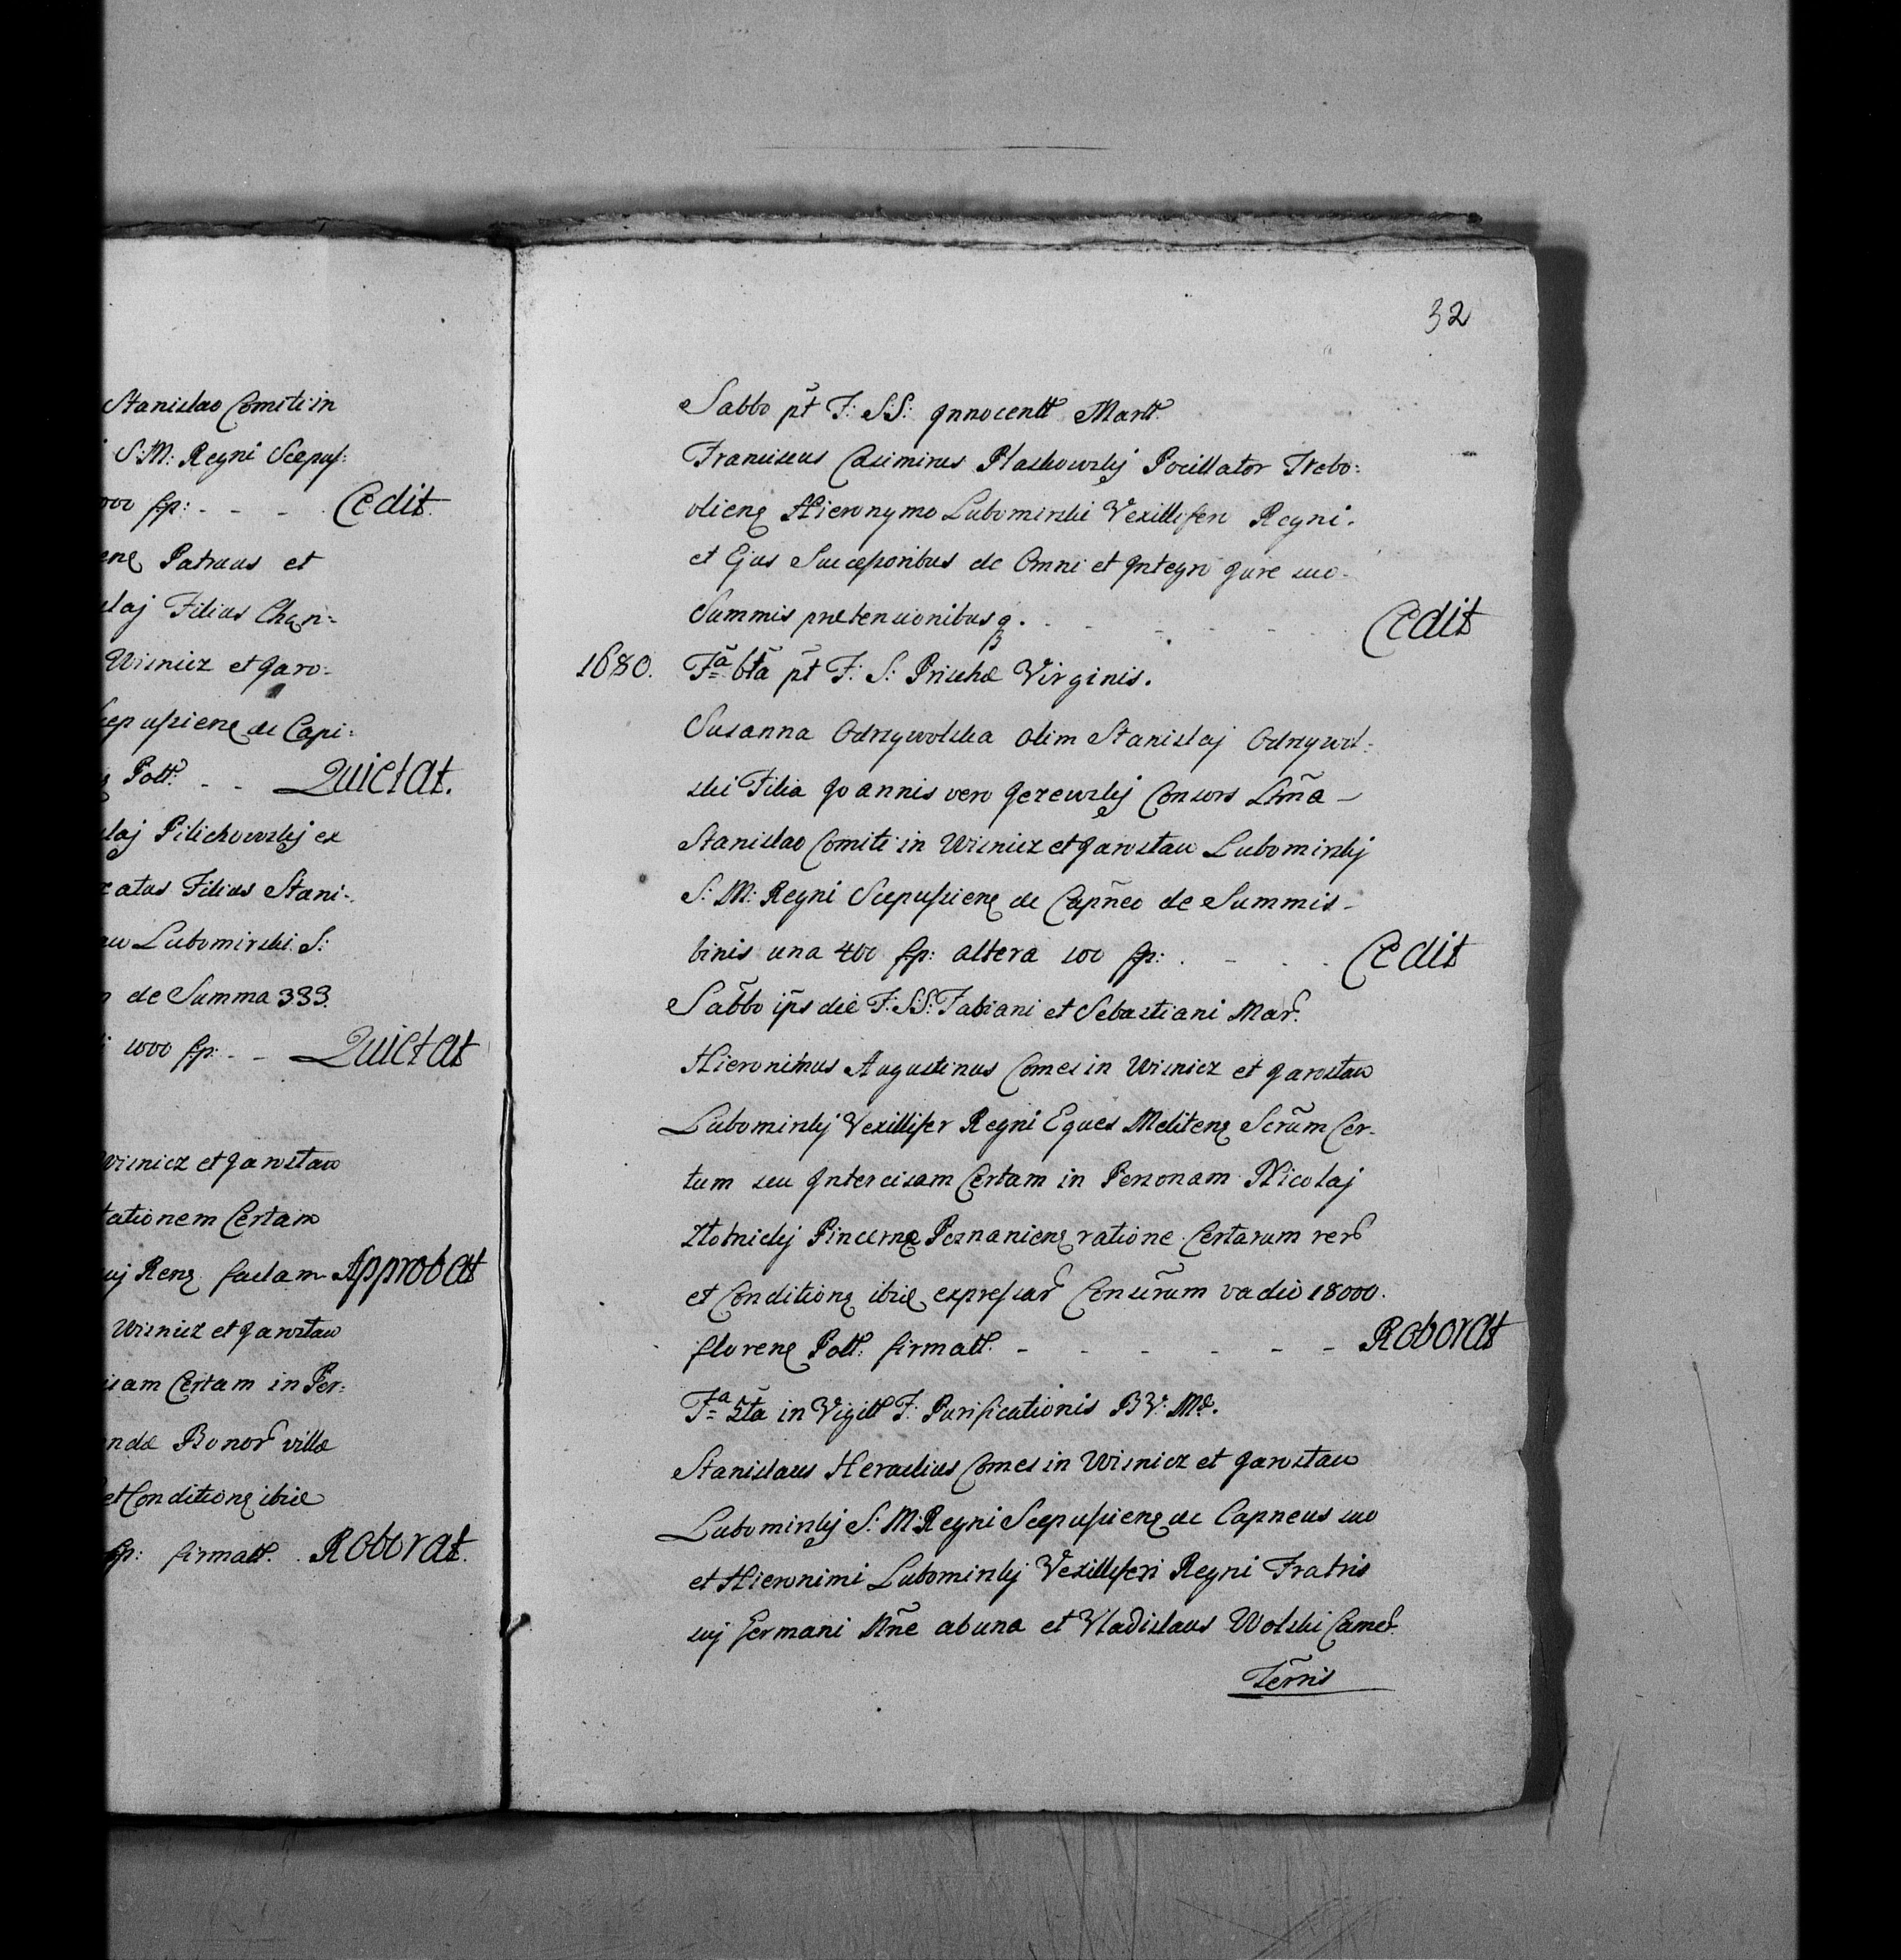 Stanislao Comiti in
S: M: Regni Scepuß:
000 fp: - - - Cedit.
Patruus et
laj Filius Chęn=
Wisnicz et Jaro=
Scepußienẹ de Capi=
Poll. - - Quietat.
laj Pilichowskij ex
catus Filius Stani-
Lubomirski S:
de Summa 333.
1000 fp: - - Quietat
Wisnicz et Jarostaw
tationem Certam
uj Renẹ factam Approbat
Wisnicz et Jarostaw
isam Certam in Per=
ndæ Bonor ville
et Conditionẹ ibid
fp: firmatt. Roborat.
32
Sabbo pt F: S:S: Jnnocentt Martt
Franciscus Casimirus Plaskowskij Pocillator Trebo=
vlienẹ Hieronymo Lubomirski Vexillifero Regni.
et Ejus Sucessoribus de Omni et Jntegro Jure suo-
Summis pretensionibusq. - - - - - Cedit
1680. Fa 6ta pt F: S: Priscæ Virginis.
Susanna Odrzywolska olim Stanislaj Odrzywol=
ski Filia Joannis vero Jezewskij Consors Ltma -
Stanislao Comiti in Wisnicz et Jarostaw Lubomirskij
S: M: Regni Scepußienẹ de Capneo de Summis -
binis una 400 fp: altera 100 fp: . - . . Cedit
Sabbo ips die F: S:S: Fabiani et Sebastiani Mar.
Hieronimus Augustinus Comes in Wisnicz et Jarostaw
Lubomirskij Vexillifer Regni Eques Melitenẹ Scrum Cer-
tum seu Jntercisam Certam in Personam Nicolaj
Złotnickij Pincernę Poznanienẹ ratione Certarum rer
et Conditionẹ ibid expressar Conscrum vadio 18000.
florenẹ Poll: firmatt. - - - - - - Roborat
Fa 5ta in Vigill F: Purificationis B V: M:.
Stanislaus Heraclius Comes in Wisnicz et Jarostaw
Lubomirskij S: M: Regni Scepußienẹ de Capneus suo
et Hieronimi Lubomirskij Vexilliferi Regni Fratris
suj Germani Nne ab una et Vladislaus Wolski Camer.
Terris